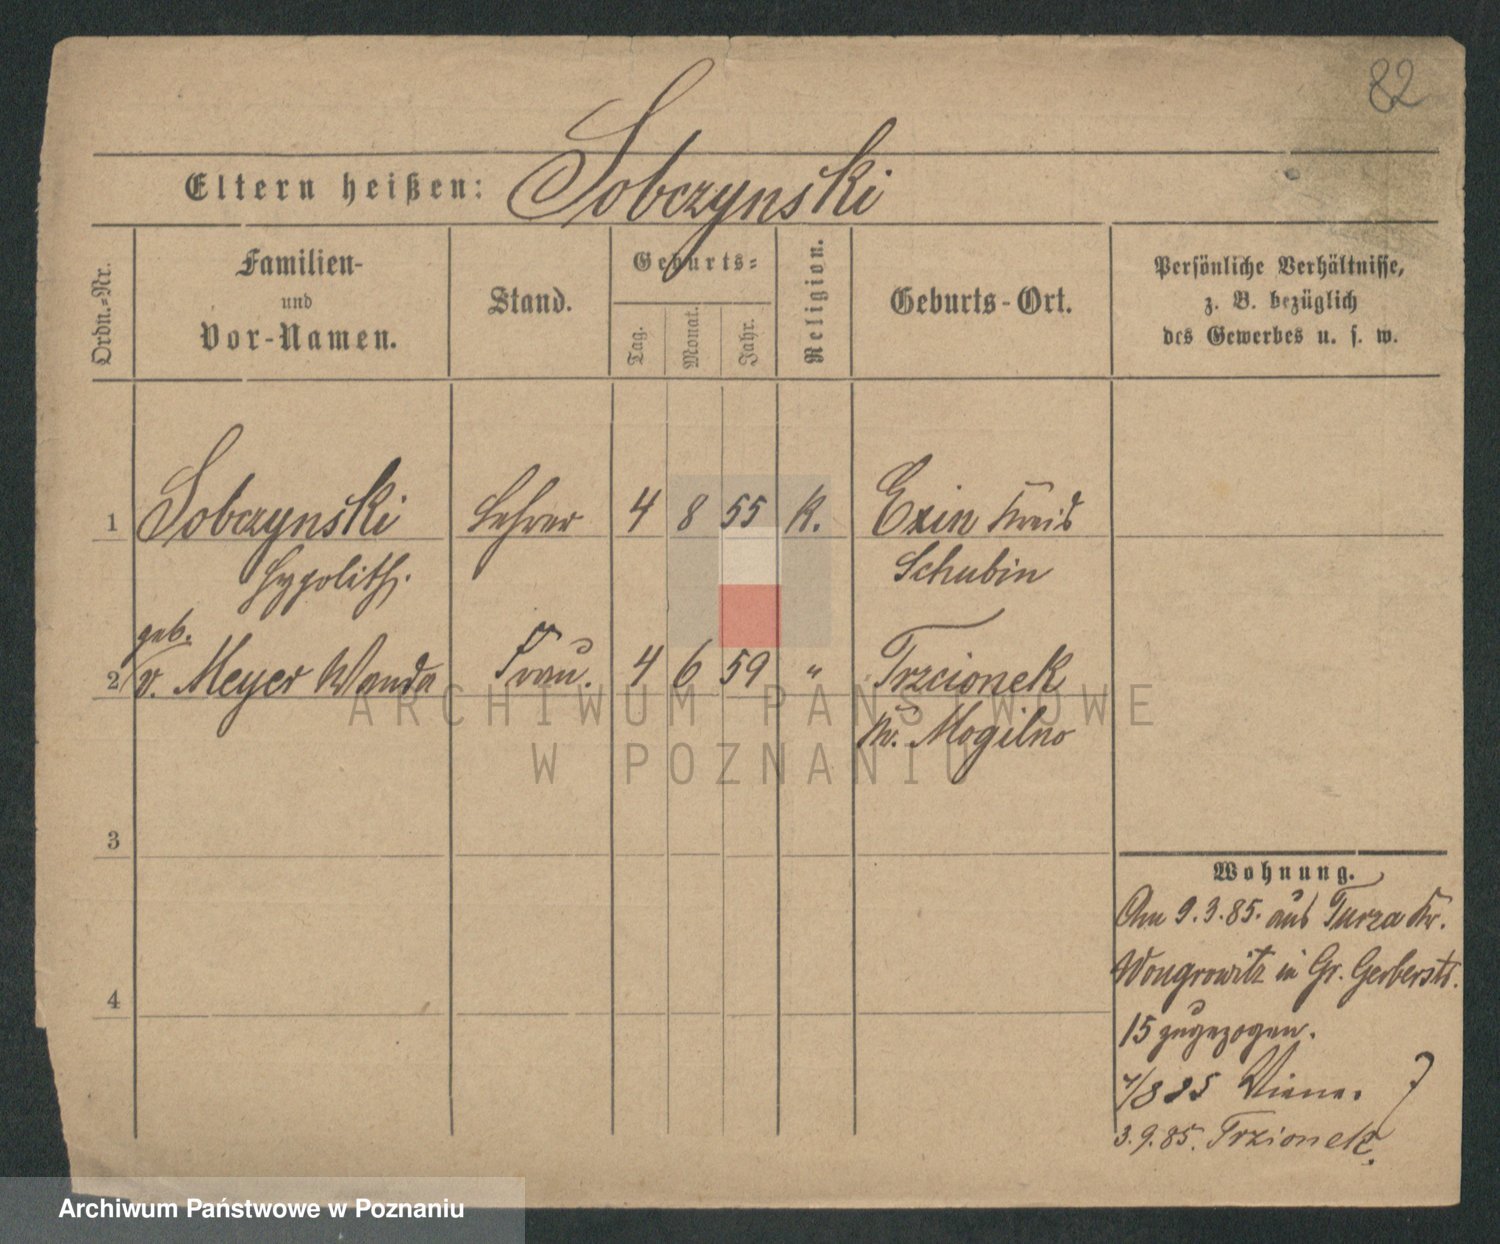 82
Eltern heißen: Sobczynski
Ordn.-Nr.
Familien-
und
Vor-Namen.
Stand.
Geburts-
Tag.
Monat.
Jahr.
Religion.
Geburts-Ort.
Persönliche Verhältnisse,
z. B. bezüglich
des Gewerbes u. s. w.
1 Sobczynski Lehrer 4 8 55 K. Exin Kreis
Hypolith. Schubin
geb.
2 v. Meyer Wanda Frau. 4 6 59 " Trzcionek
Kr. Mogilno
3
4
Wohnung.
Am 9.3.85. aus Turza Kr.
Wongrowitz in Gr. Gerberstr.
15 zugezogen.
/8 85
3.9.85. Trzionek.
ARCHIWUM PAŃSTWOWE
W POZNANIU
Archiwum Państwowe w Poznaniu